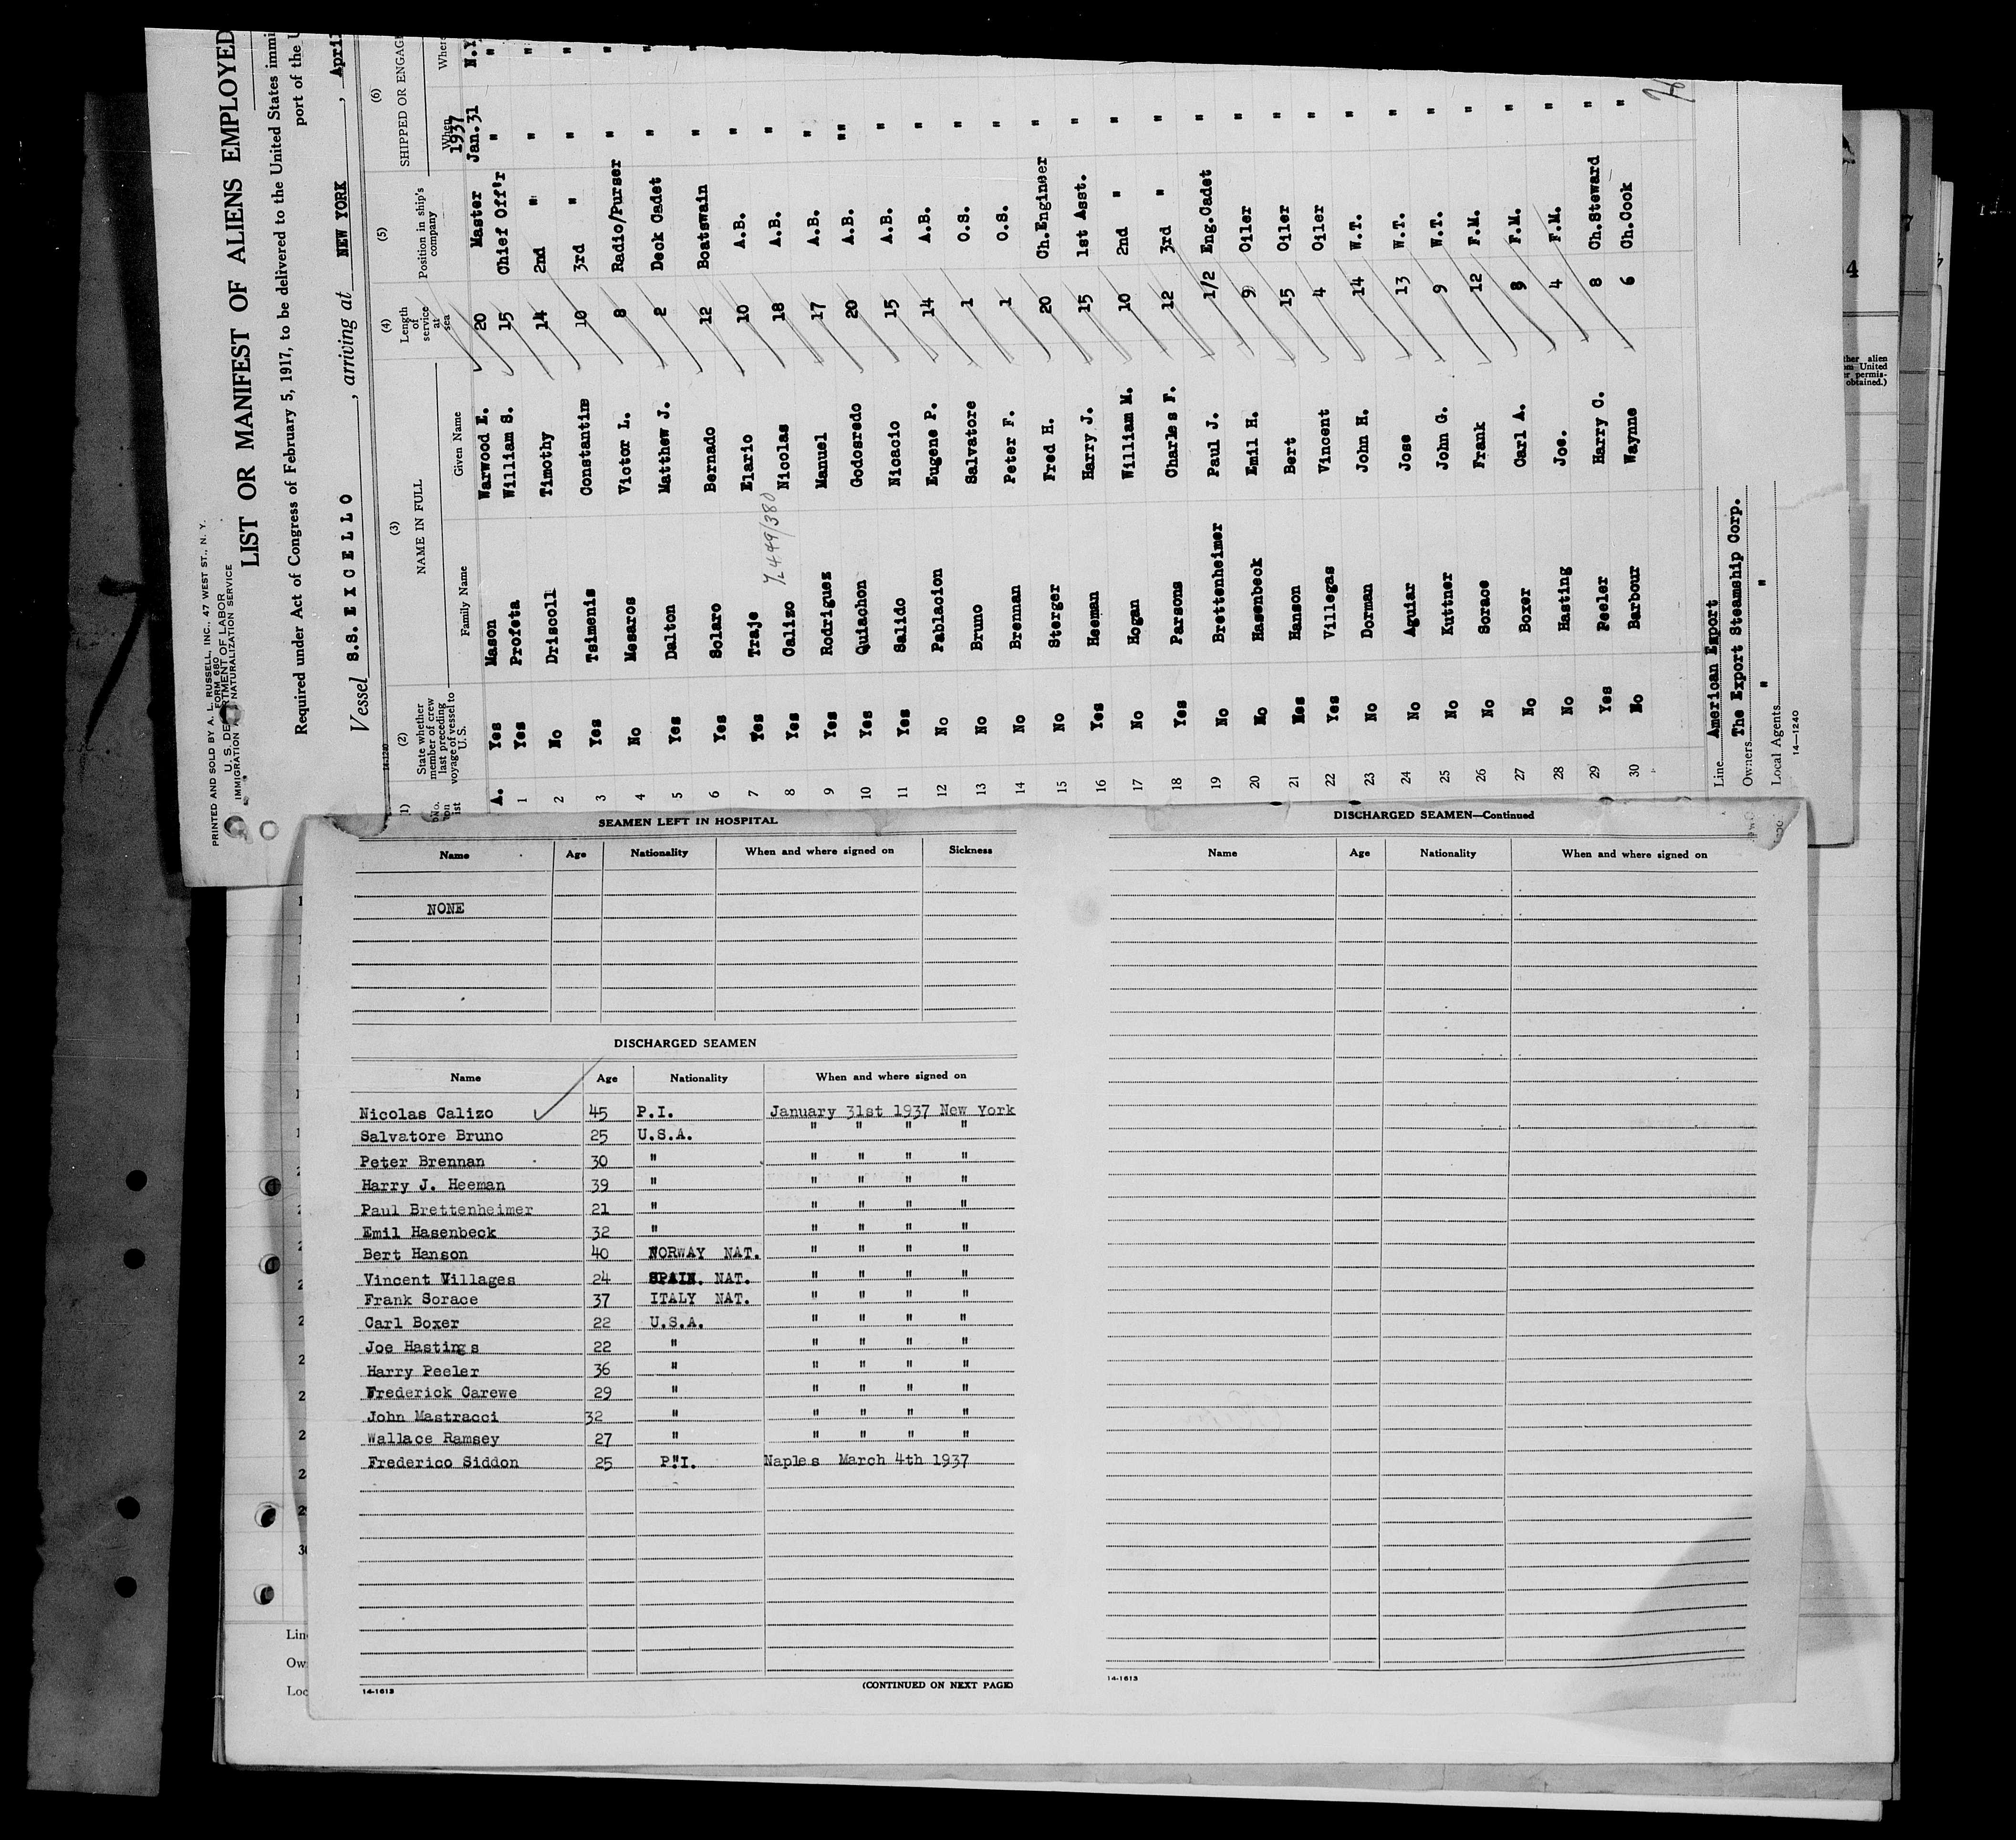 PRINTED AND SOLD BY A. L. RUSSELL, INC., 47 WEST ST., N. Y.
FORM 687
U. S. DEPARTMENT OF LABOR
IMMIGRATION NATURALIZATION SERVICE
LIST OR MANIFEST OF ALIENS EMPLOYED
Required under Act of Congress of February 5, 1917, to be delivered to the United States immi
port of the U
Vessel S.S. EXCELLO, arriving at NEW YORK, April
14-1240
(1) (2) (3) (4) (5) (6)
No. on list
State whether member of crew last preceding voyage of vessel to U. S.
NAME IN FULL
Family Name Given Name
Length of service at sea
Position in ship's company
SHIPPED OR ENGAG
When Where
1937
A. Yes Mason Warwood E. 20 Master Jan.31 N.Y
1 Yes Profeta William S. 15 Chief Off'r " "
2 No Driscoll Timothy 14 2nd " " "
3 Yes Tsimenis Constantine 10 3rd " " "
4 No Mesaros Victor L. 8 Radio/Purser " "
5 Yes Dalton Matthew J. 2 Deck Cadet " "
6 Yes Solaro Bernado 12 Boatswain " "
7 Yes Traje Elario 10 A.B. " "
8 Yes Calizo Nicolas 18 A.B. " "
9 Yes Rodriguez Manuel 17 A.B. "
10 Yes Quiachon Godosredo 20 A.B. ""
11 Yes Salido Nicacio 15 A.B. "
12 No Pablacion Eugene P. 14 A.B. "
13 No Bruno Salvatore 1 O.S. "
14 No Brennan Peter F. 1 O.S. "
15 No Sterger Fred H. 20 Ch.Engineer "
16 Yes Heeman Harry J. 15 1st Asst. "
17 No Hogan William M. 10 2nd " "
18 Yes Parsons Charles F. 12 3rd " "
19 No Brettenheimer Paul J. 1/2 Eng.Cadet "
20 No Hasenbeck Emil H. 9 Oiler "
21 Hanson Bert 15 Oiler "
22 Yes Villegas Vincent 4 Oiler "
23 No Dorman John H. 14 W.T. "
24 No Aguiar Jose 13 W.T. "
25 No Kuttner John G. 9 W.T. "
26 No Sorace Frank 12 F.M. "
27 No Boxer Carl A. F.M. "
28 No Hasting Joe. 4 F.M. "
29 Yes Peeler Harry C. 8 Ch.Steward "
30 No Barbour Waynne 6 Ch.Cook "
Line American Export
Owners The Export Steamship Corp.
Local Agents " "
14—1240
SEAMEN LEFT IN HOSPITAL
Name Age Nationality When and where signed on Sickness
NONE
DISCHARGED SEAMEN
Name Age Nationality When and where signed on
Nicolas Calizo 45 P.I. January 31st 1937 New York
Salvatore Bruno 25 U.S.A. " " " "
Peter Brennan 30 " " " " "
Harry J. Heeman 39 " " " " "
Paul Brettenheimer 21 " " " " "
Emil Hasenbeck 32 " " " " "
Bert Hanson 40 NORWAY NAT. " " " "
Vincent Villages 24 SPAIN. NAT. " " " "
Frank Sorace 37 ITALY NAT. " " " "
Carl Boxer 22 U.S.A. " " " "
Joe Hastings 22 " " " " "
Harry Peeler 36 " " " " "
Frederick Carewe 29 " " " " "
John Mastracci 32 " " " " "
Wallace Ramsey 27 " " " " "
Frederico Siddon 25 P.I. Naples March 4th 1937
14-1613
(CONTINUED ON NEXT PAGE)
DISCHARGED SEAMEN—Continued
Name Age Nationality When and where signed on
14-1613
4
ther alien
om United
r permis-
obtained.)
30
Lin
Ow
Loc